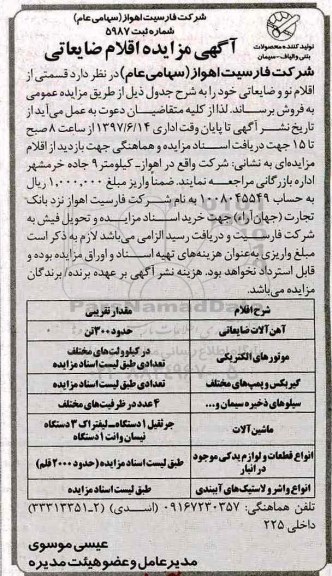 شرکت فارسیت اهواز (سهامی عام)
شماره ثبت ۵۹۸۷
تولید کننده محصولات
بتنی و الیاف - سیمان
آگهی مزایده اقلام ضایعاتی
شرکت فارسیت اهواز (سهامی عام) در نظر دارد قسمتی از
اقلام نو و ضایعاتی خود را به شرح جدول ذیل از طریق مزایده عمومی
به فروش برساند. لذا از کلیه متقاضیان دعوت به عمل می‌آید از
تاریخ نشر آگهی تا پایان وقت اداری ۱۳۹۷/۶/۱۴ از ساعت ۸ صبح
تا ۱۵ جهت دریافت اسناد مزایده و هماهنگی جهت بازدید از اقلام
مزایده‌ای به نشانی: شرکت واقع در اهواز- کیلومتر ۹ جاده خرمشهر
اداره بازرگانی مراجعه نمایند. ضمنا واریز مبلغ ۱,۰۰۰,۰۰۰ ریال
به حساب ۱۰۰۸۰۴۵۵۴۹ به نام شرکت فارسیت اهواز نزد بانک
تجارت (جهان آرا) جهت خرید اسناد مزایده و تحویل فیش به
شرکت فارسیت و دریافت رسید الزامی می‌باشد لازم به ذکر است
مبلغ واریزی به‌عنوان هزینه‌های تهیه اسناد و اوراق مزایده بوده و
قابل استرداد نخواهد بود. هزینه نشر آگهی بر عهده برنده/ برندگان
مزایده می‌باشد.
شرح اقلام مقدار تقریبی
آهن آلات ضایعاتی حدود ۳۰۰ تن
موتورهای الکتریکی در کیلووات‌های مختلف
تعدادی طبق لیست اسناد مزایده
گیربکس و پمپ‌های مختلف تعدادی طبق لیست اسناد مزایده
سیلوهای ذخیره سیمان و... ۴ عدد در ظرفیت‌های مختلف
ماشین آلات جرثقیل ۱ دستگاه- لیفتراک ۳ دستگاه
نیسان وانت ۱ دستگاه
انواع قطعات و لوازم یدکی موجود
در انبار طبق لیست اسناد مزایده (حدود ۲۰۰۰ قلم)
انواع واشر و لاستیک‌های آببندی طبق لیست اسناد مزایده
تلفن هماهنگی: ۰۹۱۶۷۲۳۰۳۵۷ (اسدی) (۲-۳۳۳۱۳۳۵۱)
داخلی ۲۲۵
عیسی موسوی
مدیر عامل و عضو هیئت مدیره